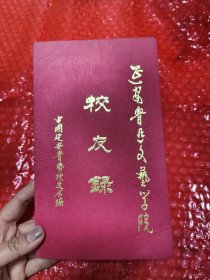 延安鲁迅文艺学院
校友録
中国延安鲁艺校友会编